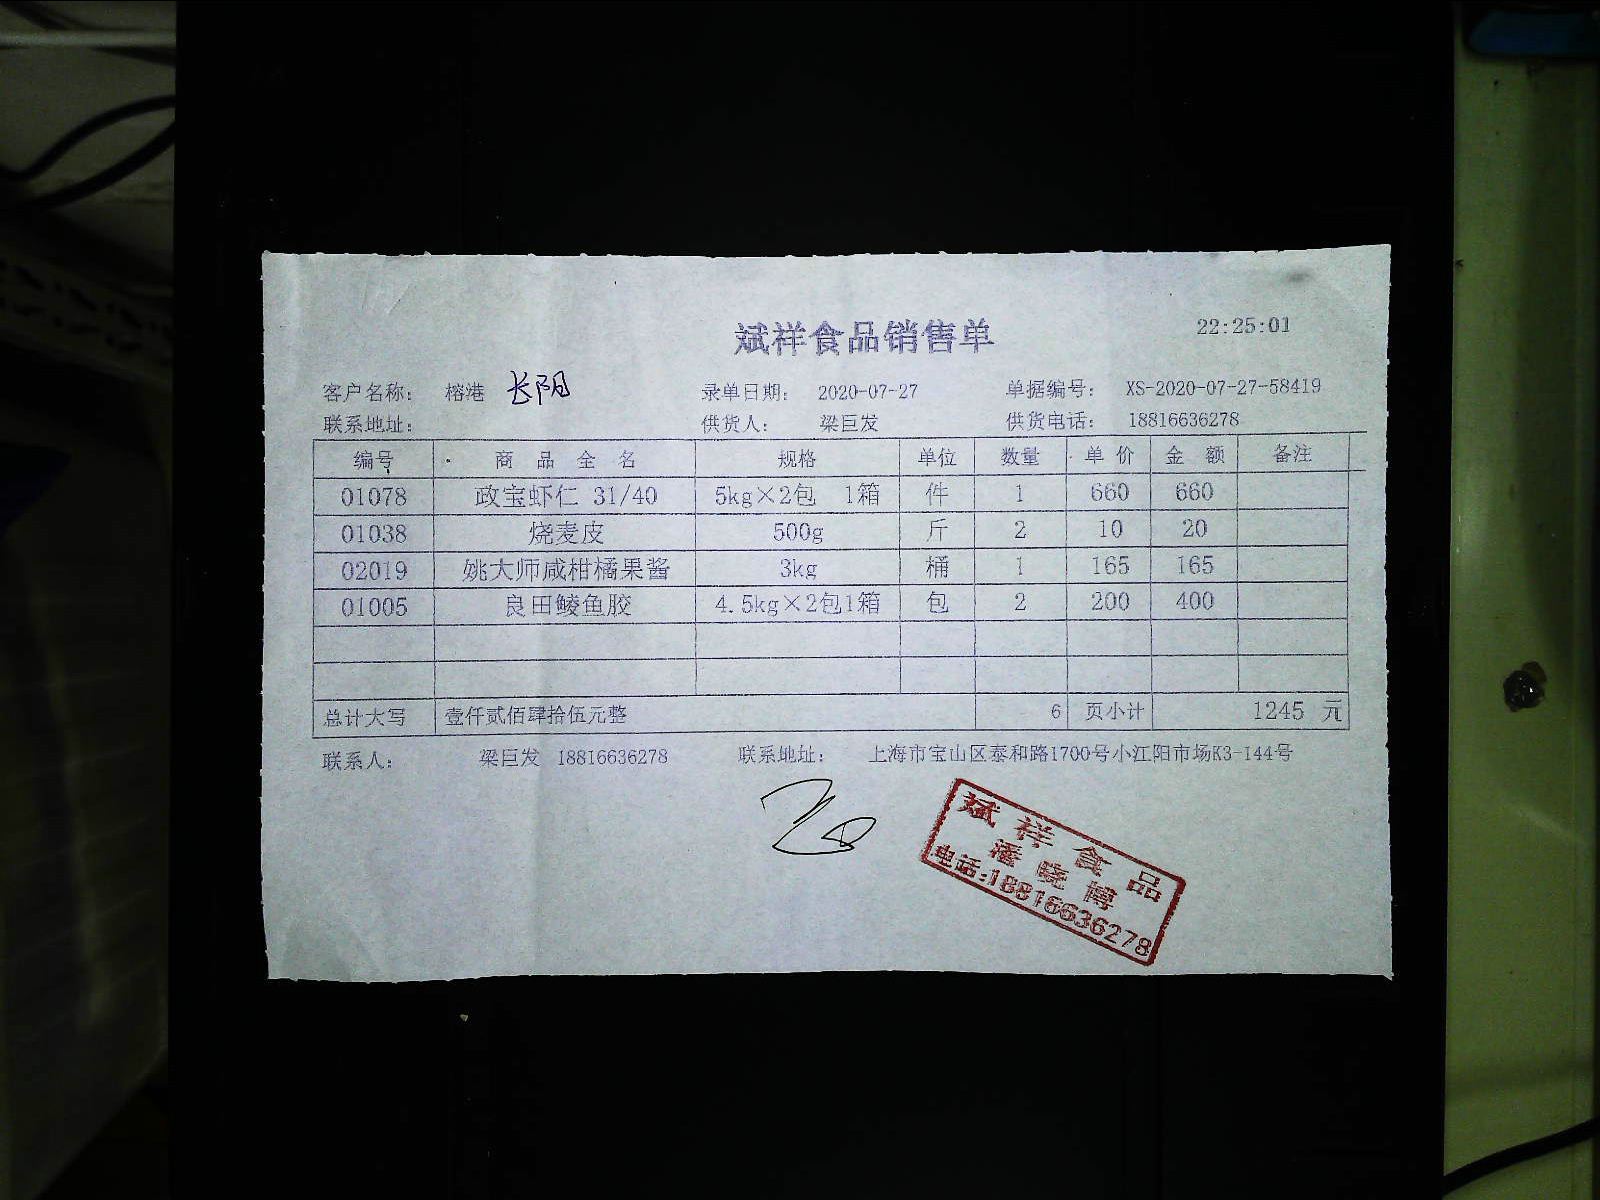 斌祥食品销售单 22:25:01
客户名称: 榕港 长阳 录单日期: 2020-07-27 单据编号: XS-2020-07-27-58419
联系地址: 供货人: 梁巨发 供货电话: 18816636278
编号 商品全名 规格 单位 数量 单价 金额 备注
01078 政宝虾仁 31/40 5kg×2包 1箱 件 1 660 660
01038 烧麦皮 500g 斤 2 10 20
02019 姚大师咸柑橘果酱 3kg 桶 1 165 165
01005 良田鲮鱼胶 4.5kg×2包1箱 包 2 200 400
总计大写 壹仟贰佰肆拾伍元整 6 页小计 1245 元
联系人: 梁巨发 18816636278 联系地址: 上海市宝山区泰和路1700号小江阳市场K3-144号
斌祥食品
潘晓博
电话:18816636278